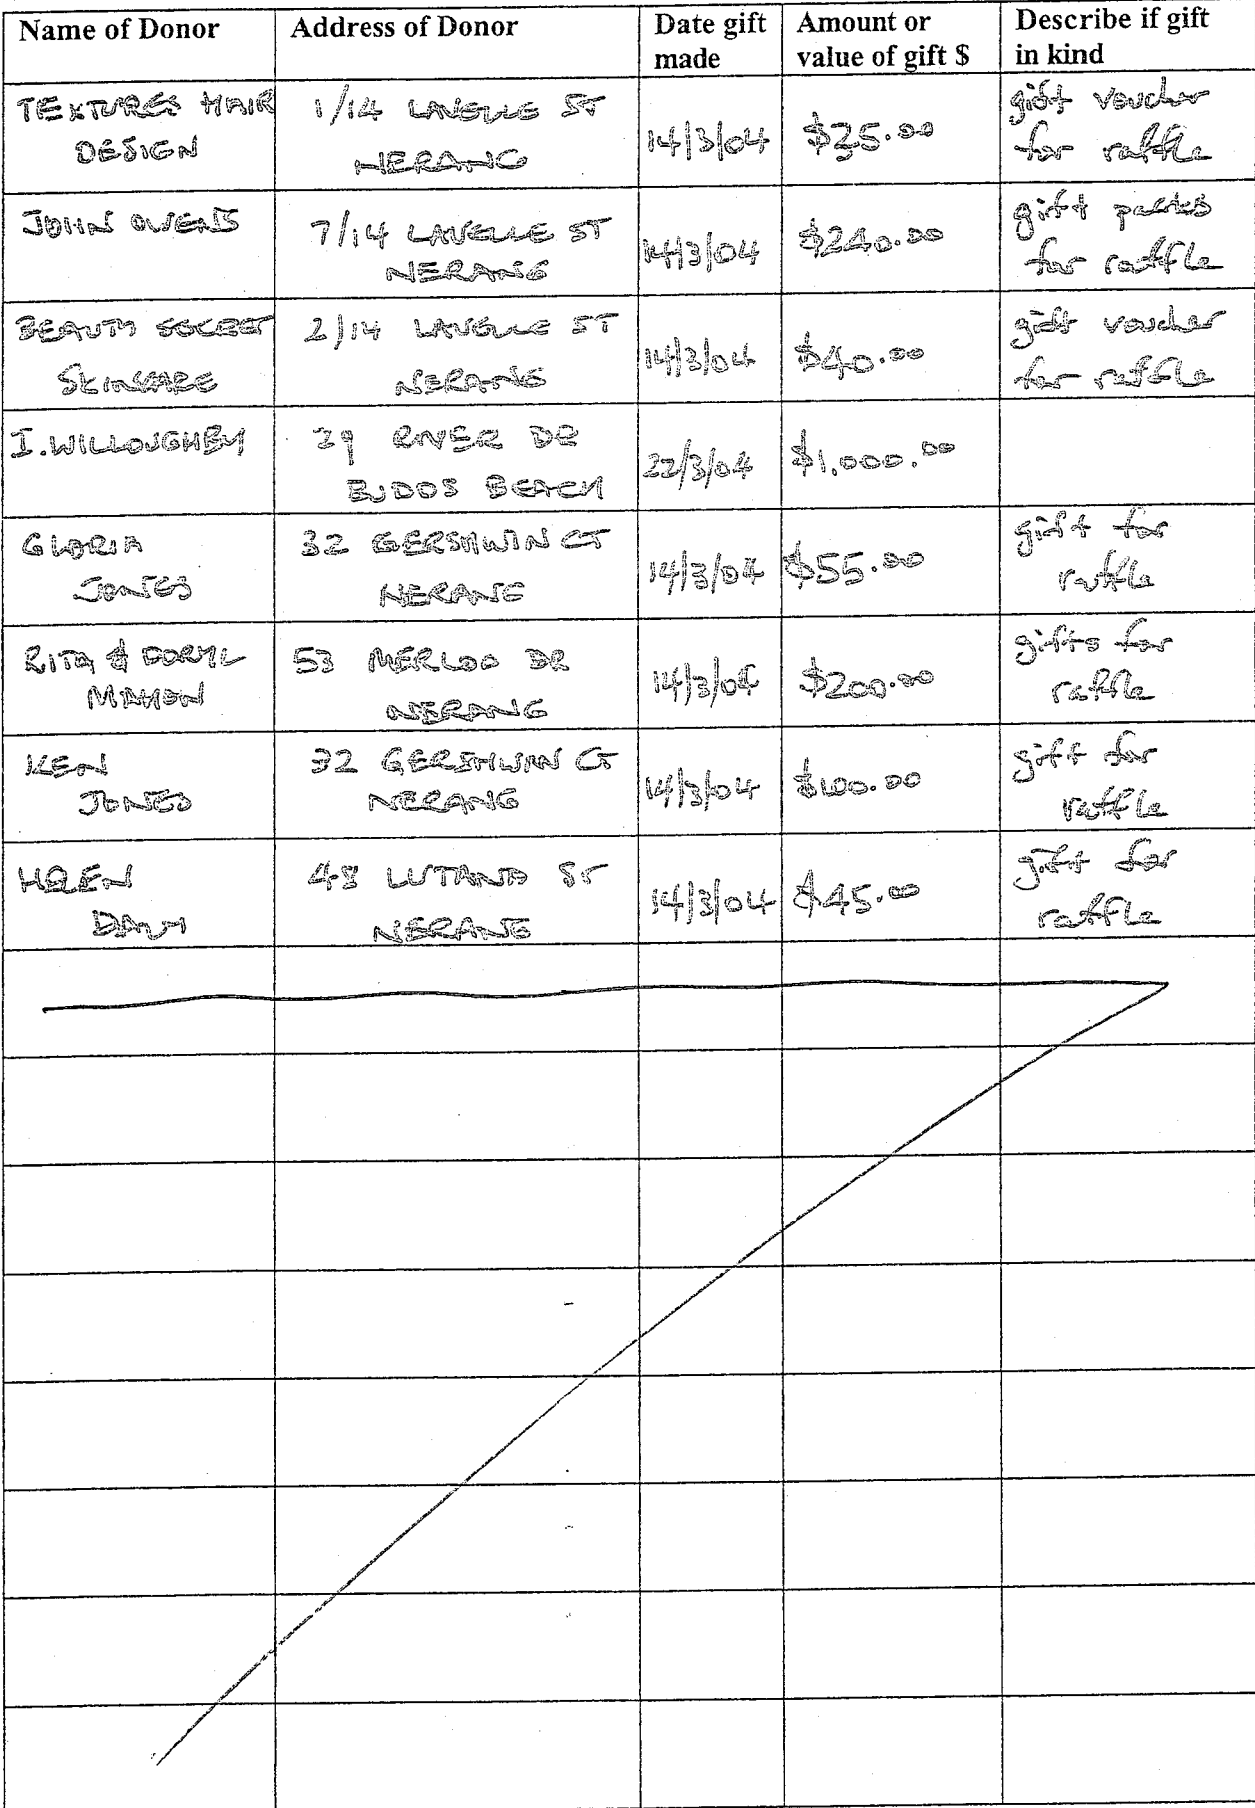 Name of Donor Address of Donor Date gift made Amount or value of gift $ Describe if gift in kind
TEXTURES HAIR DESIGN 1/14 LAVELLE ST NERANG 14/3/04 $25.00 gift voucher for raffle
JOHN OWENS 7/14 LAVELLE ST NERANG 14/3/04 $240.00 gift packs for raffle
BEAUTY SECRET SKINCARE 2/14 LAVELLE ST NERANG 14/3/04 $40.00 gift voucher for raffle
I. WILLOUGHBY 39 RIVER DR BUDDS BEACH 22/3/04 $1,000.00
GLORIA JONES 32 GERSHWIN CT NERANG 14/3/04 $55.00 gift for raffle
RITA & MAHON 53 MERLOO DR NERANG 14/3/04 $200.00 gifts for raffle
KEN JONES 32 GERSHWIN CT NERANG 14/3/04 $100.00 gift for raffle
HELEN 48 ST NERANG 14/3/04 $45.00 gift for raffle